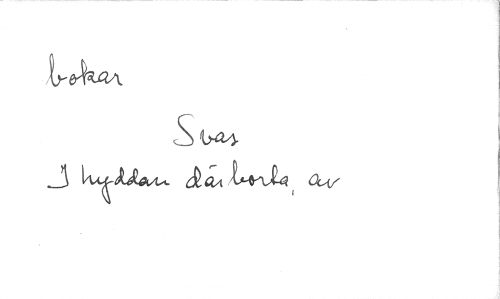 bokar
Svar
I hyddan där borta, av